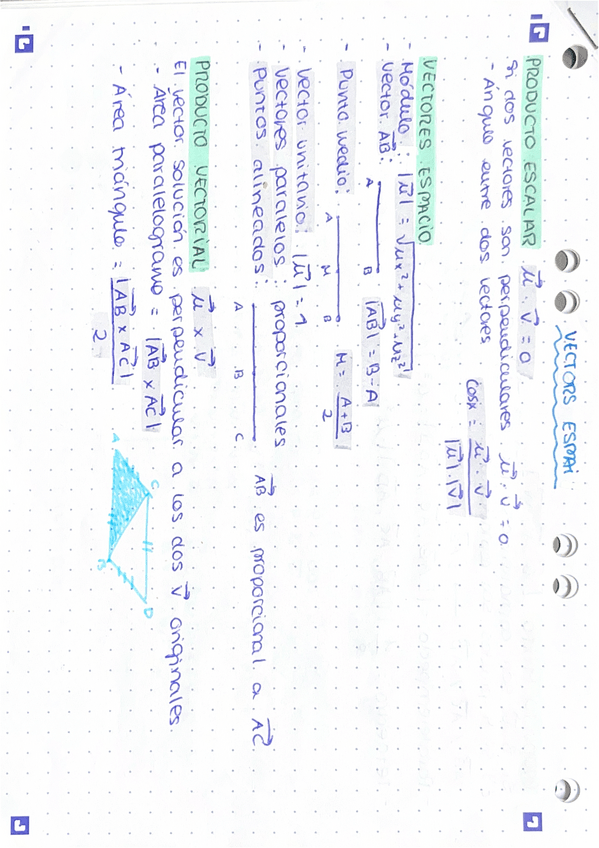 VECTORS ESPAI
PRODUCTO ESCALAR u⃗ · v⃗ = 0
Si dos vectores son perpendiculares u⃗ · v⃗ = 0
- Ángulo entre dos vectores cosα = u⃗ · v⃗ / |u⃗| · |v⃗|
VECTORES ESPACIO
- Módulo: |u⃗| = √ux² + uy² + uz²
- Vector AB⃗: A B |AB⃗| = B - A
- Punto medio: A M B M = A + B / 2
- Vector unitario: |u⃗| = 1
- Vectores paralelos: proporcionales
- Puntos alineados: A B C AB⃗ es proporcional a AC⃗
PRODUCTO VECTORIAL u⃗ x v⃗
El vector solución es perpendicular a los dos v⃗ originales
- Área paralelogramo = |AB⃗ x AC⃗|
- Área triángulo = |AB⃗ x AC⃗| / 2
A C B D